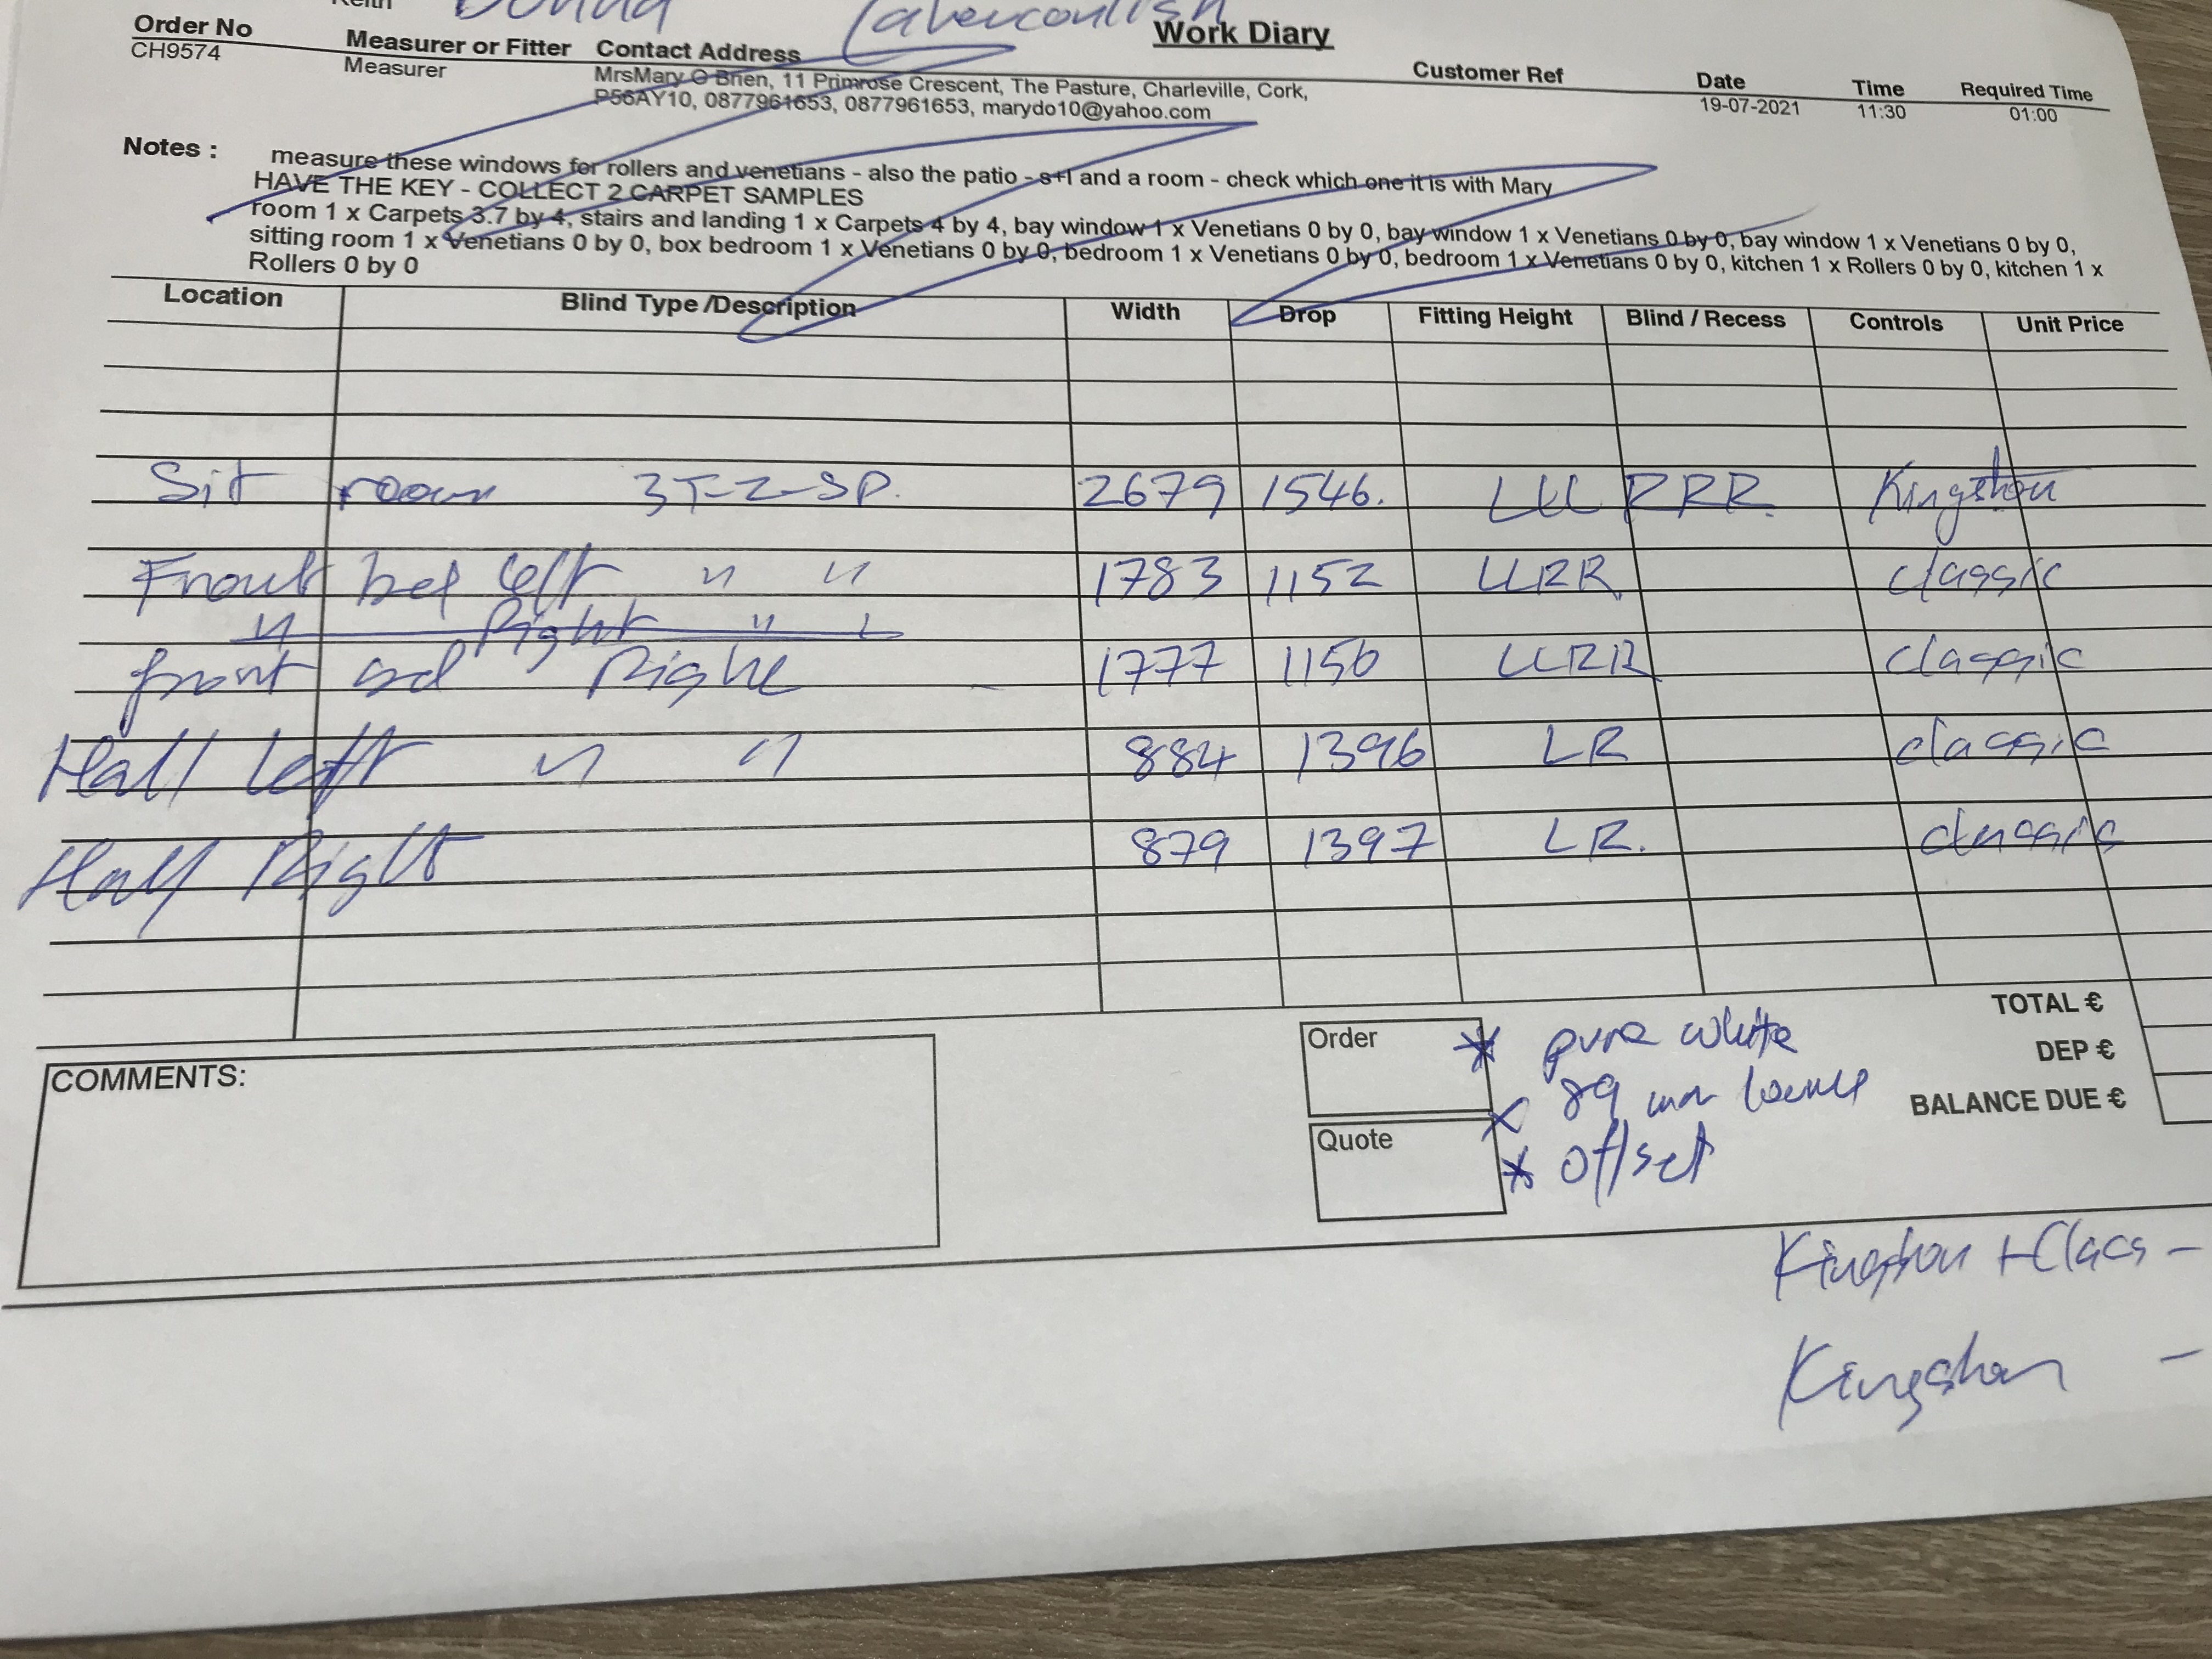 Keith Donna
Work Diary
Order No Measurer or Fitter Contact Address Customer Ref Date Time Required Time
CH9574 Measurer MrsMary O Brien, 11 Primrose Crescent, The Pasture, Charleville, Cork, 19-07-2021 11:30 01:00
P56AY10, 0877961653, 0877961653, marydo10@yahoo.com
Notes : measure these windows for rollers and venetians - also the patio - s+l and a room - check which one it is with Mary
HAVE THE KEY - COLLECT 2 CARPET SAMPLES
room 1 x Carpets 3.7 by 4, stairs and landing 1 x Carpets 4 by 4, bay window 1 x Venetians 0 by 0, bay window 1 x Venetians 0 by 0, bay window 1 x Venetians 0 by 0,
sitting room 1 x Venetians 0 by 0, box bedroom 1 x Venetians 0 by 0, bedroom 1 x Venetians 0 by 0, bedroom 1 x Venetians 0 by 0, kitchen 1 x Rollers 0 by 0, kitchen 1 x
Rollers 0 by 0
Location Blind Type /Description Width Drop Fitting Height Blind / Recess Controls Unit Price
Sit room 3T-2-SP. 2679 1546. LLL RRR. Kingston
Front bed left " " 1783 1152 LLRR. classic
" Right "
front bed Right 1777 1150 LLRR classic
Hall Left " " 884 1396 LR classic
Hall Right 879 1397 LR. classic
TOTAL €
DEP €
BALANCE DUE €
COMMENTS:
Order * pure white
x 89 mm louvre
Quote * offset
Kingston + Class -
Kingston -